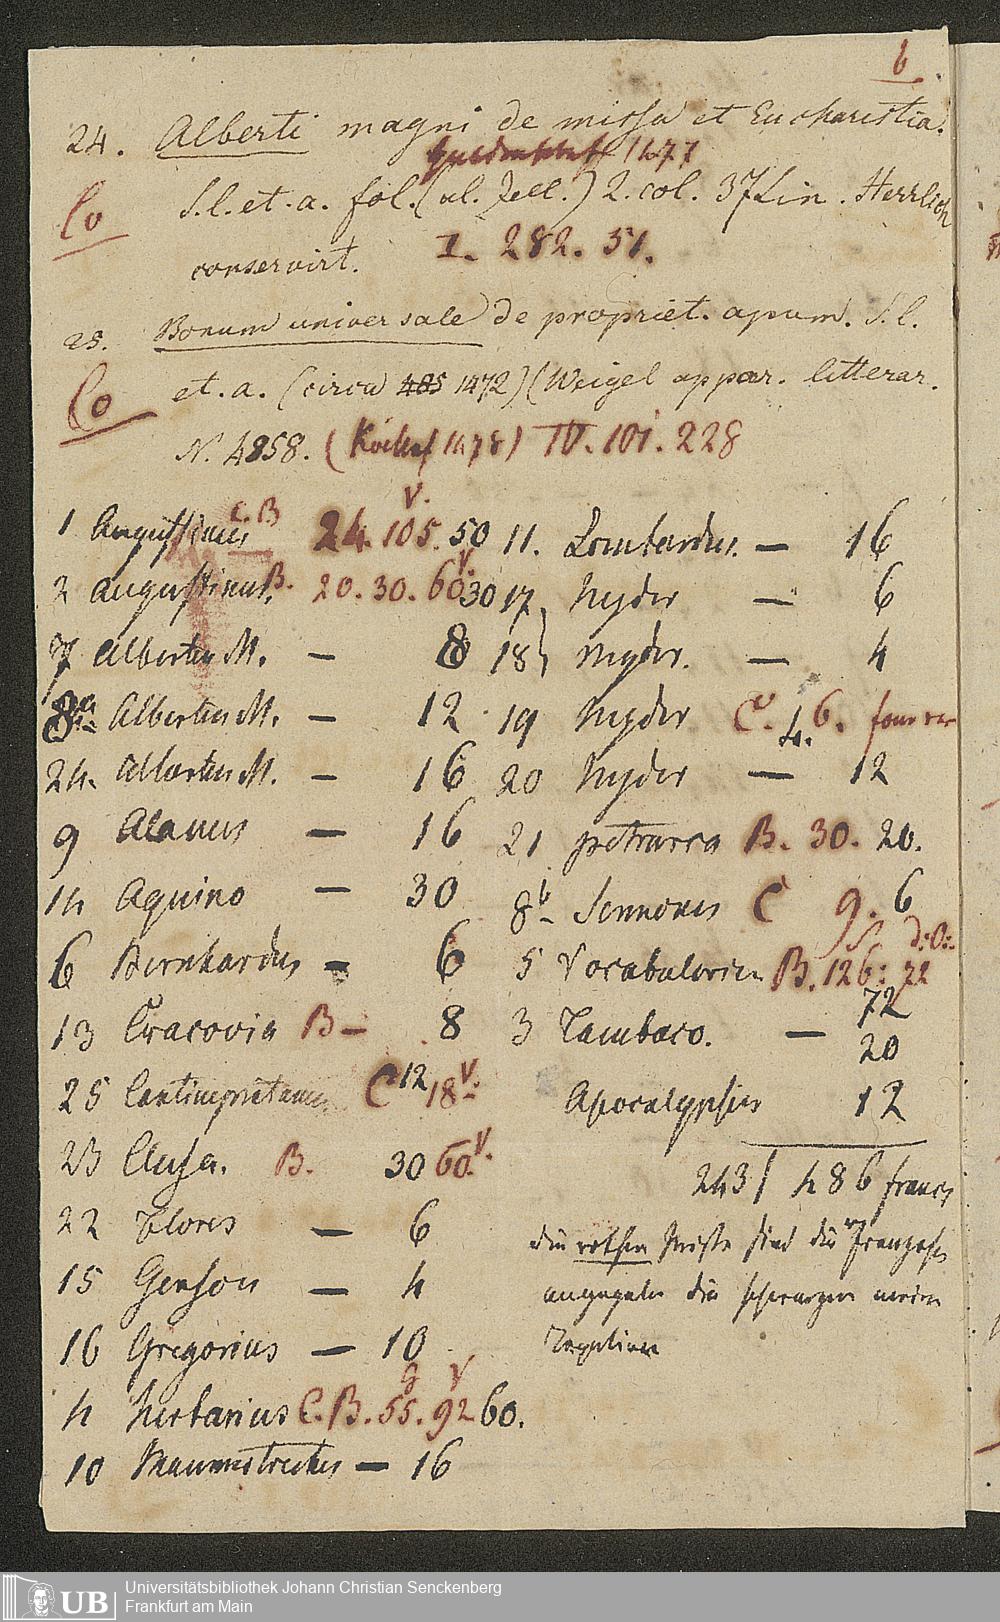 6.
24. Alberti magni de missa et Eucharistia.
1477
S. l. et. a. fol. (ul. Zell.) 2. col. 37 Lin. Herrlich
conservirt. I. 282. 51.
25. Bonum universale de propriet. apum. S. l.
Co et. a. (circa 485 1472) (Weigel appar. litterar.
N. 4858. (Koelhof 1478) IV. 101. 228
1 Augustinus C. B 24. 105. V. 50
2 Augustinus B. 20. 30. 60 V. 30
7 Albertus M. — 8
8a Albertus M. — 12
24. Albertus M. — 16
9 Alanus — 16
14 Aquino — 30
6 Bernhardus — 6
13 Cracovia B — 8
25 Cantimpratanus C 12 18 V.
23 Clusa. B. 30 60. V.
22 Flores — 6
15 Gerson — 4
16 Gregorius — 10
4 Herbarius C. B. 55. G 92 V 60.
10 Mammetrectus — 16
11. Lombardus. — 16
17 Nyder — 6
18 Nyder. — 4
19 Nyder C. 4. 6.
20 Nyder — 12
21 petrarca B. 30. 20.
8b Sermones C 9. 6
5 Vocabularium B. 126: 72
72
3 Tambaco. — 20
Apocalypsis 12
243 / 486 francs
die rothen Preise sind die v. Franzosen
angegeben die schwarzen meine